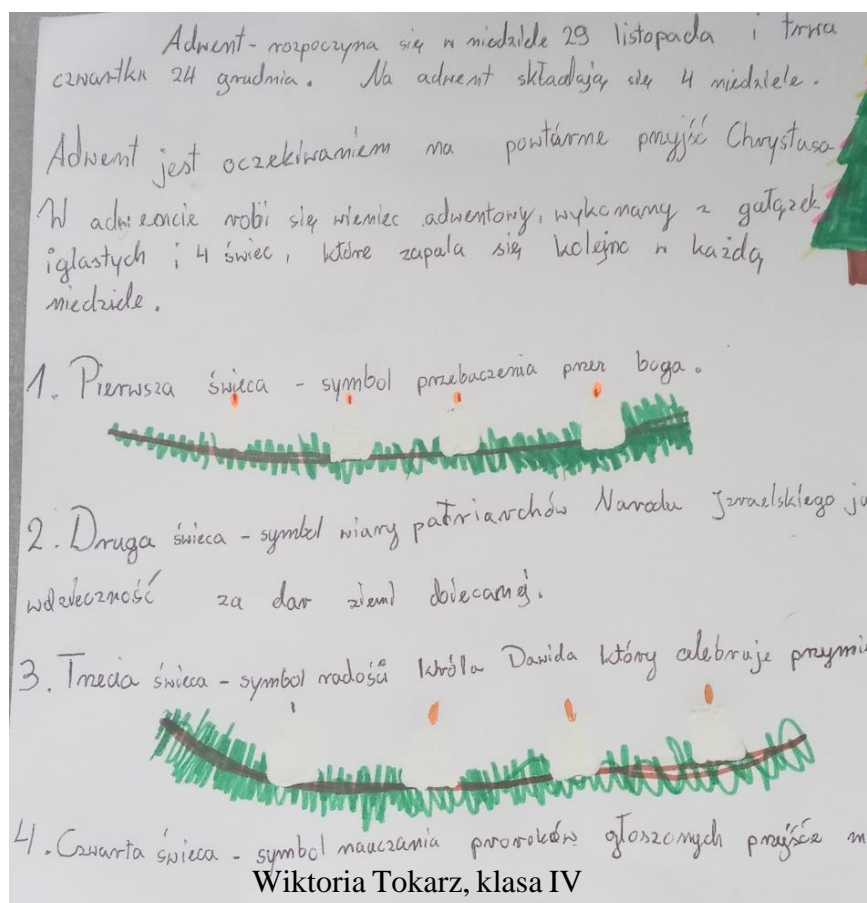 Adwent - rozpoczyna się w niedziele 29 listopada i trwa
czwartku 24 grudnia. Na adwent składają się 4 niedziele.
Adwent jest oczekiwaniem na powtórne przyjść Chrystusa
W adwencie robi się wieniec adwentowy, wykonany z gałązek
iglastych i 4 świec, które zapala się kolejno w każdą
niedziele.
1. Pierwsza świeca - symbol przebaczenia przez boga.
2. Druga świeca - symbol wiary patriarchów Narodu Izraelskiego
wdzieczność za dar ziemi obiecanej.
3. Trzecia świeca - symbol radości króla Dawida który celebruje
4. Czwarta świeca - symbol nauczania proroków głoszonych przyjście
Wiktoria Tokarz, klasa IV